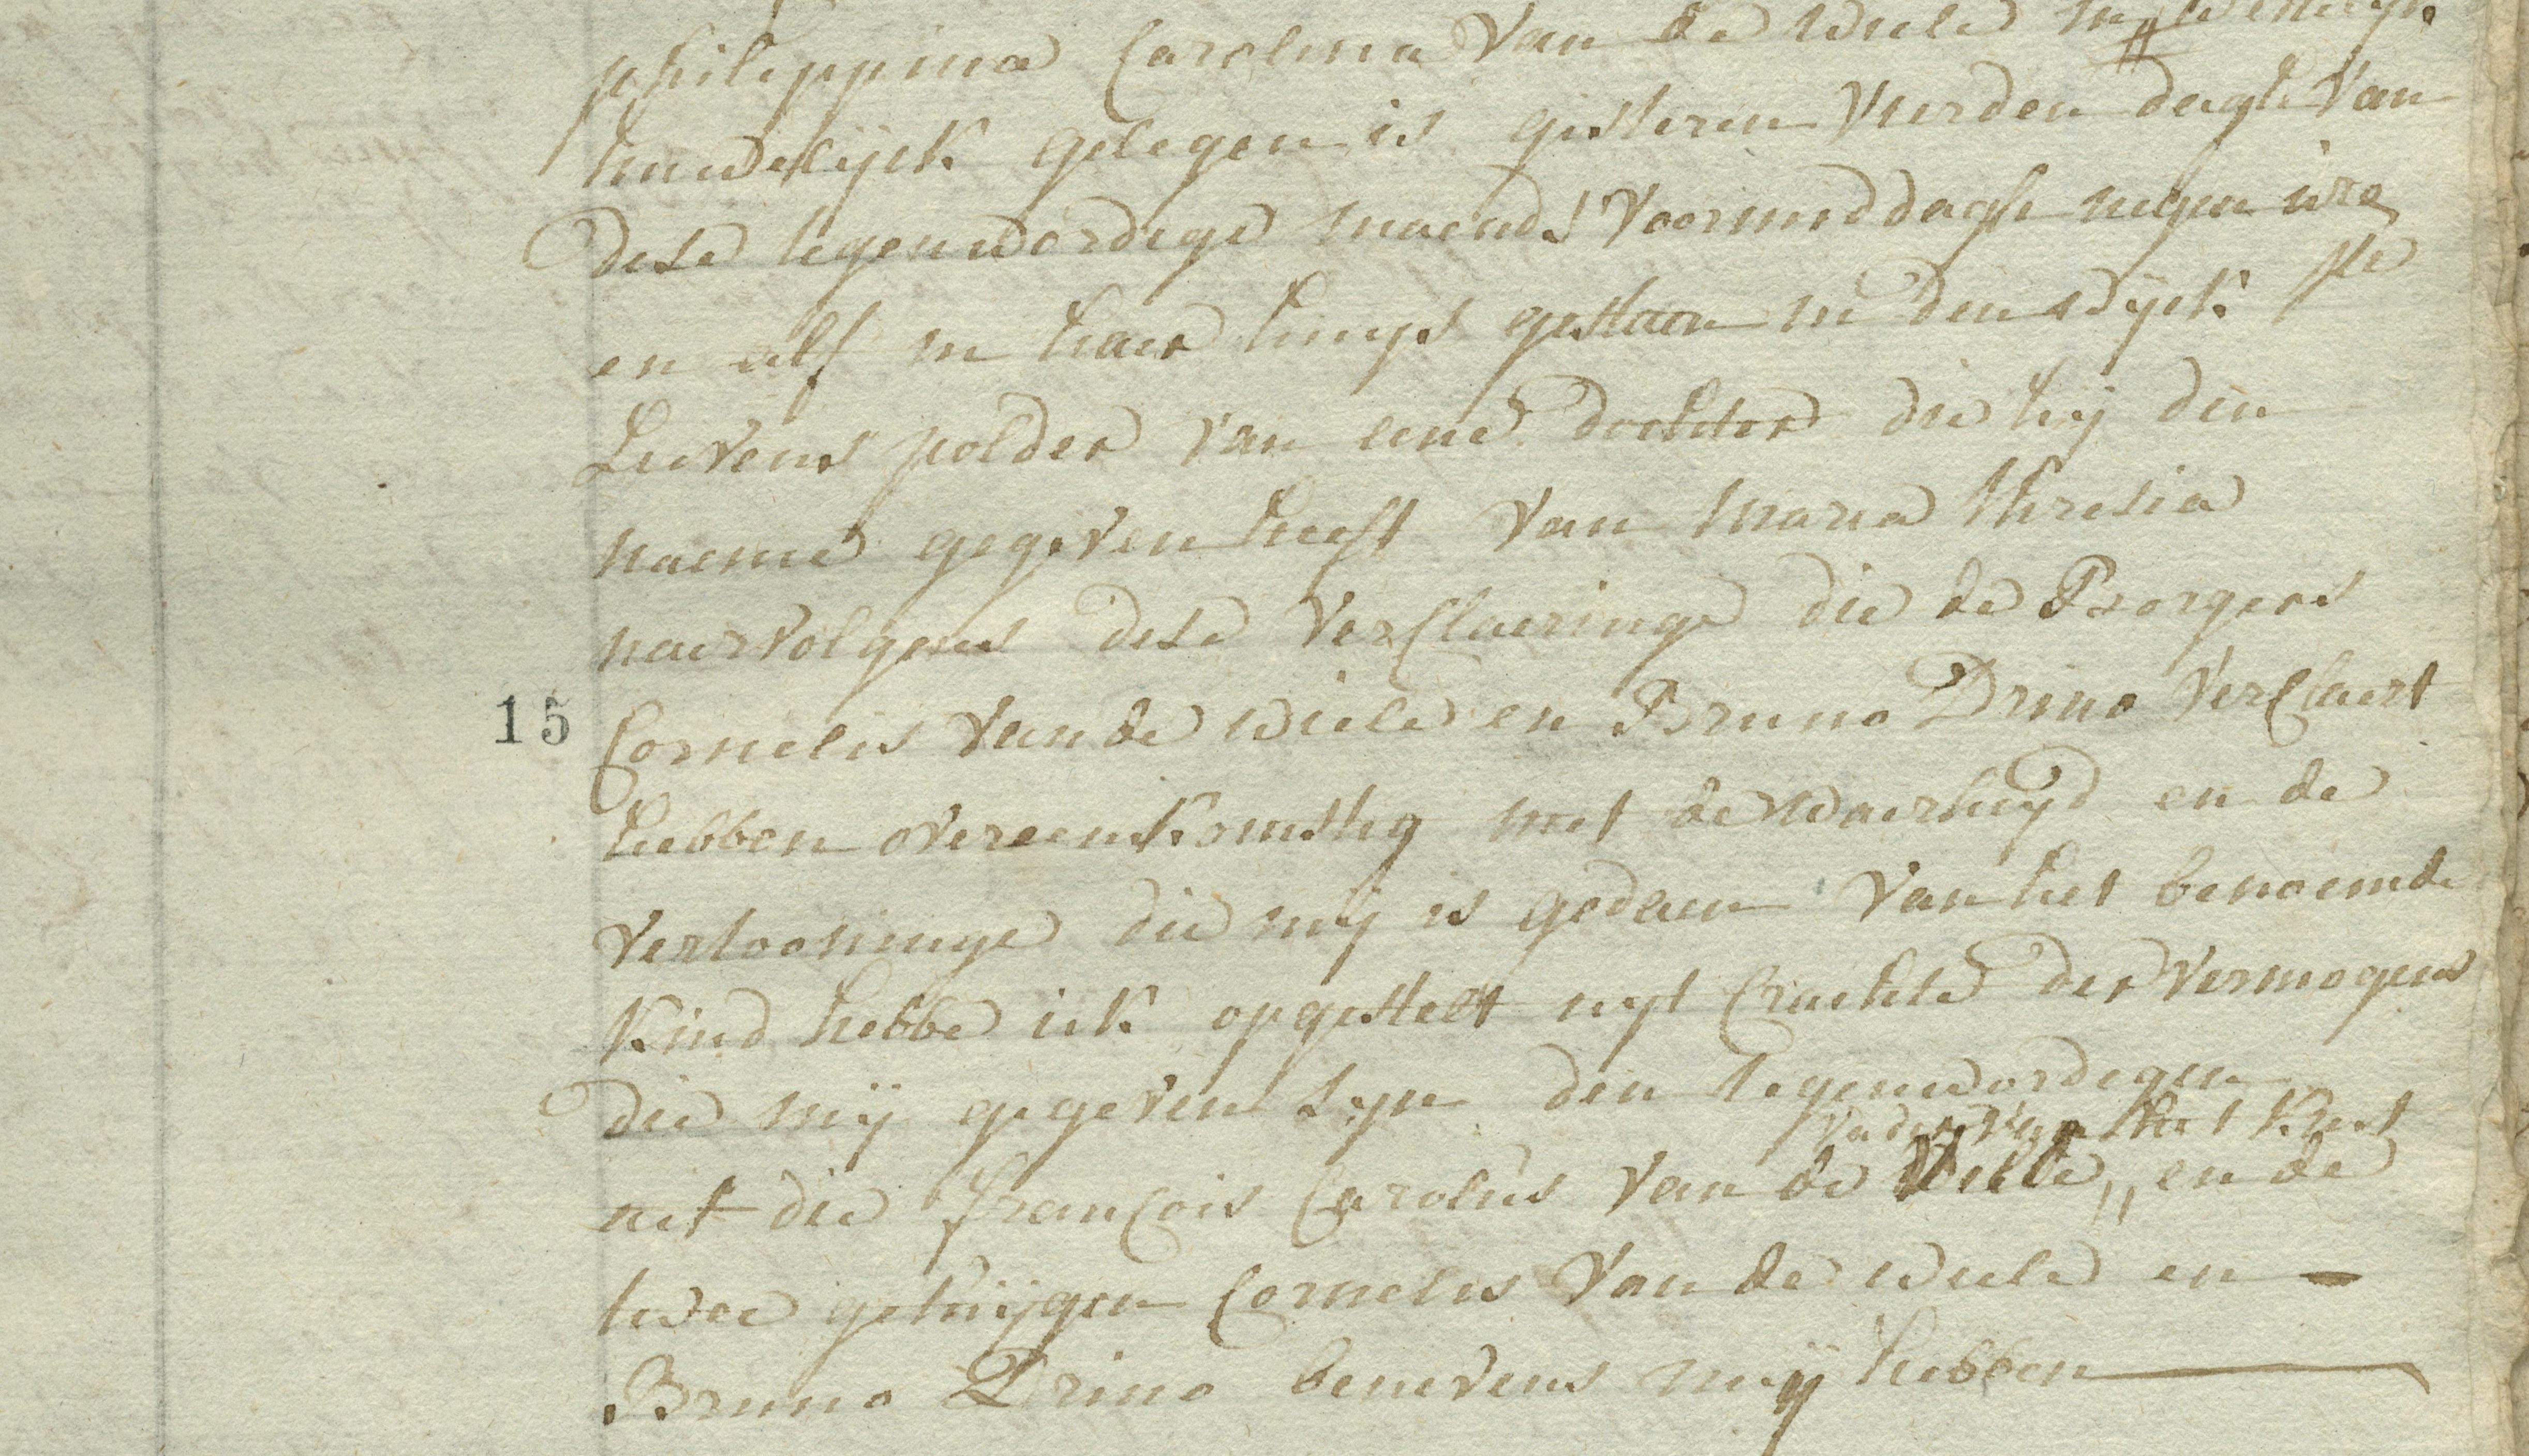 philippina Carolina Van de Wiele in wettelijk
huwelijck gelegen is gisteren vierden dagh Van
dese tegenwordige maend Voormiddagh negen ure
en alf in haer huijs gestaen in den dijck ste
Lievens polder van eene dochter die hij den
naeme gegeven heeft Van Maria thresia
naervolgens dese VerClaeringe die de Borgers
15 Cornelis Van de wiele en Bruno Drino VerClaert
hebben overeenkomstig met de waerheyd en de
vertooninge die mij is gedaen Van het benoemde
Kind hebbe ick opgestelt uijt Crachte der Vermogens
die mij gegeven syn den tegenwordigen
Vader Van het Kint
act die franCois Carolus Van de Wiele, en de
twee getuijgen Cornelis Van de wiele en
Bruno Drino benevens mij hebben